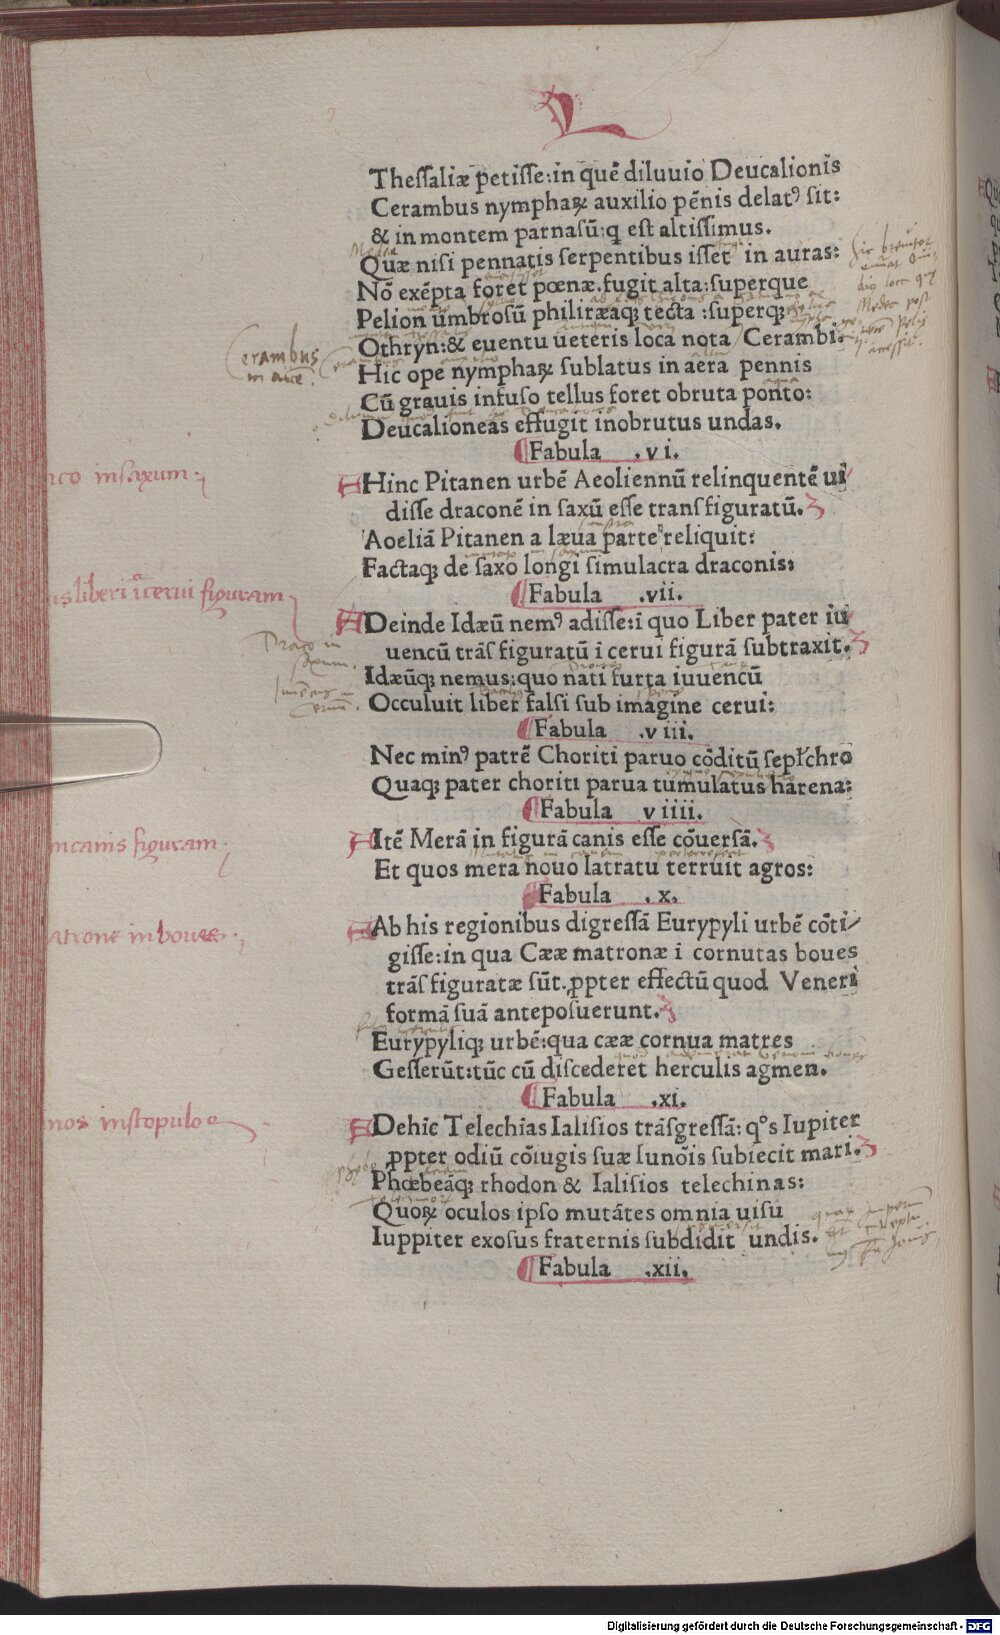 L
Thessaliæ petisse: in quē diluuio Deucalionis
Cerambus nymphaꝝ auxilio pēnis delatꝰ sit:
& in montem parnasū: q est altissimus.
Medea
Quæ nisi pennatis serpentibus isset in auras:
Nō exēpta foret pœnæ. fugit alta: superque
Pelion umbrosū philiræaqꝫ tecta: superqꝫ
Othryn: & euentu ueteris loca nota / Cerambi.
Cerambus
in auē.
Hic ope nymphaꝝ sublatus in aera pennis
Cū grauis infuso tellus foret obruta ponto:
Deucalioneas effugit inobrutus undas.
¶ Fabula .vi.
aco in saxum.
Hinc Pitanen urbē Aeoliennū relinquentē ui
disse draconē in saxū esse transfiguratū.
Aoeliā Pitanen a læua parte reliquit:
Factaqꝫ de saxo longi simulacra draconis:
¶ Fabula .vii.
us liberi ī cerui figuram
Deinde Idæū nemꝰ adisse: ī quo Liber pater iu
uencū trāsfiguratū i cerui figurā subtraxit.
Draco in
saxum.
Idæūqꝫ nemus: quo nati furta iuuencū
Occuluit liber falsi sub imagine cerui:
¶ Fabula .viii.
Nec minꝰ patrē Choriti paruo cōditū sepłchro
Quaqꝫ pater choriti parua tumulatus harena:
¶ Fabula viiii.
in canis figuram.
Itē Merā in figurā canis esse cōuersā.
Et quos mera nouo latratu terruit agros:
¶ Fabula .x.
atrone in boues.
Ab his regionibus digressā Eurypyli urbē cōti/
gisse: in qua Cææ matronæ i cornutas boues
trāsfiguratæ sūt. ꝓpter effectū quod Veneri
formā suā anteposuerunt.
Eurypyliqꝫ urbē: qua cææ cornua matres
Gesserūt: tūc cū discederet herculis agmen.
¶ Fabula .xi.
nos in scopulos
Dehic Telechias Ialisios trāsgressā: qºs Iupiter
ꝓpter odiū cōiugis suæ Iunōis subiecit mari.
Phœbeāqꝫ rhodon & Ialisios telechinas:
Quoꝝ oculos ipso mutātes omnia uisu
Iuppiter exosus fraternis subdidit undis.
¶ Fabula .xii.
Digitalisierung gefördert durch die Deutsche Forschungsgemeinschaft - DFG